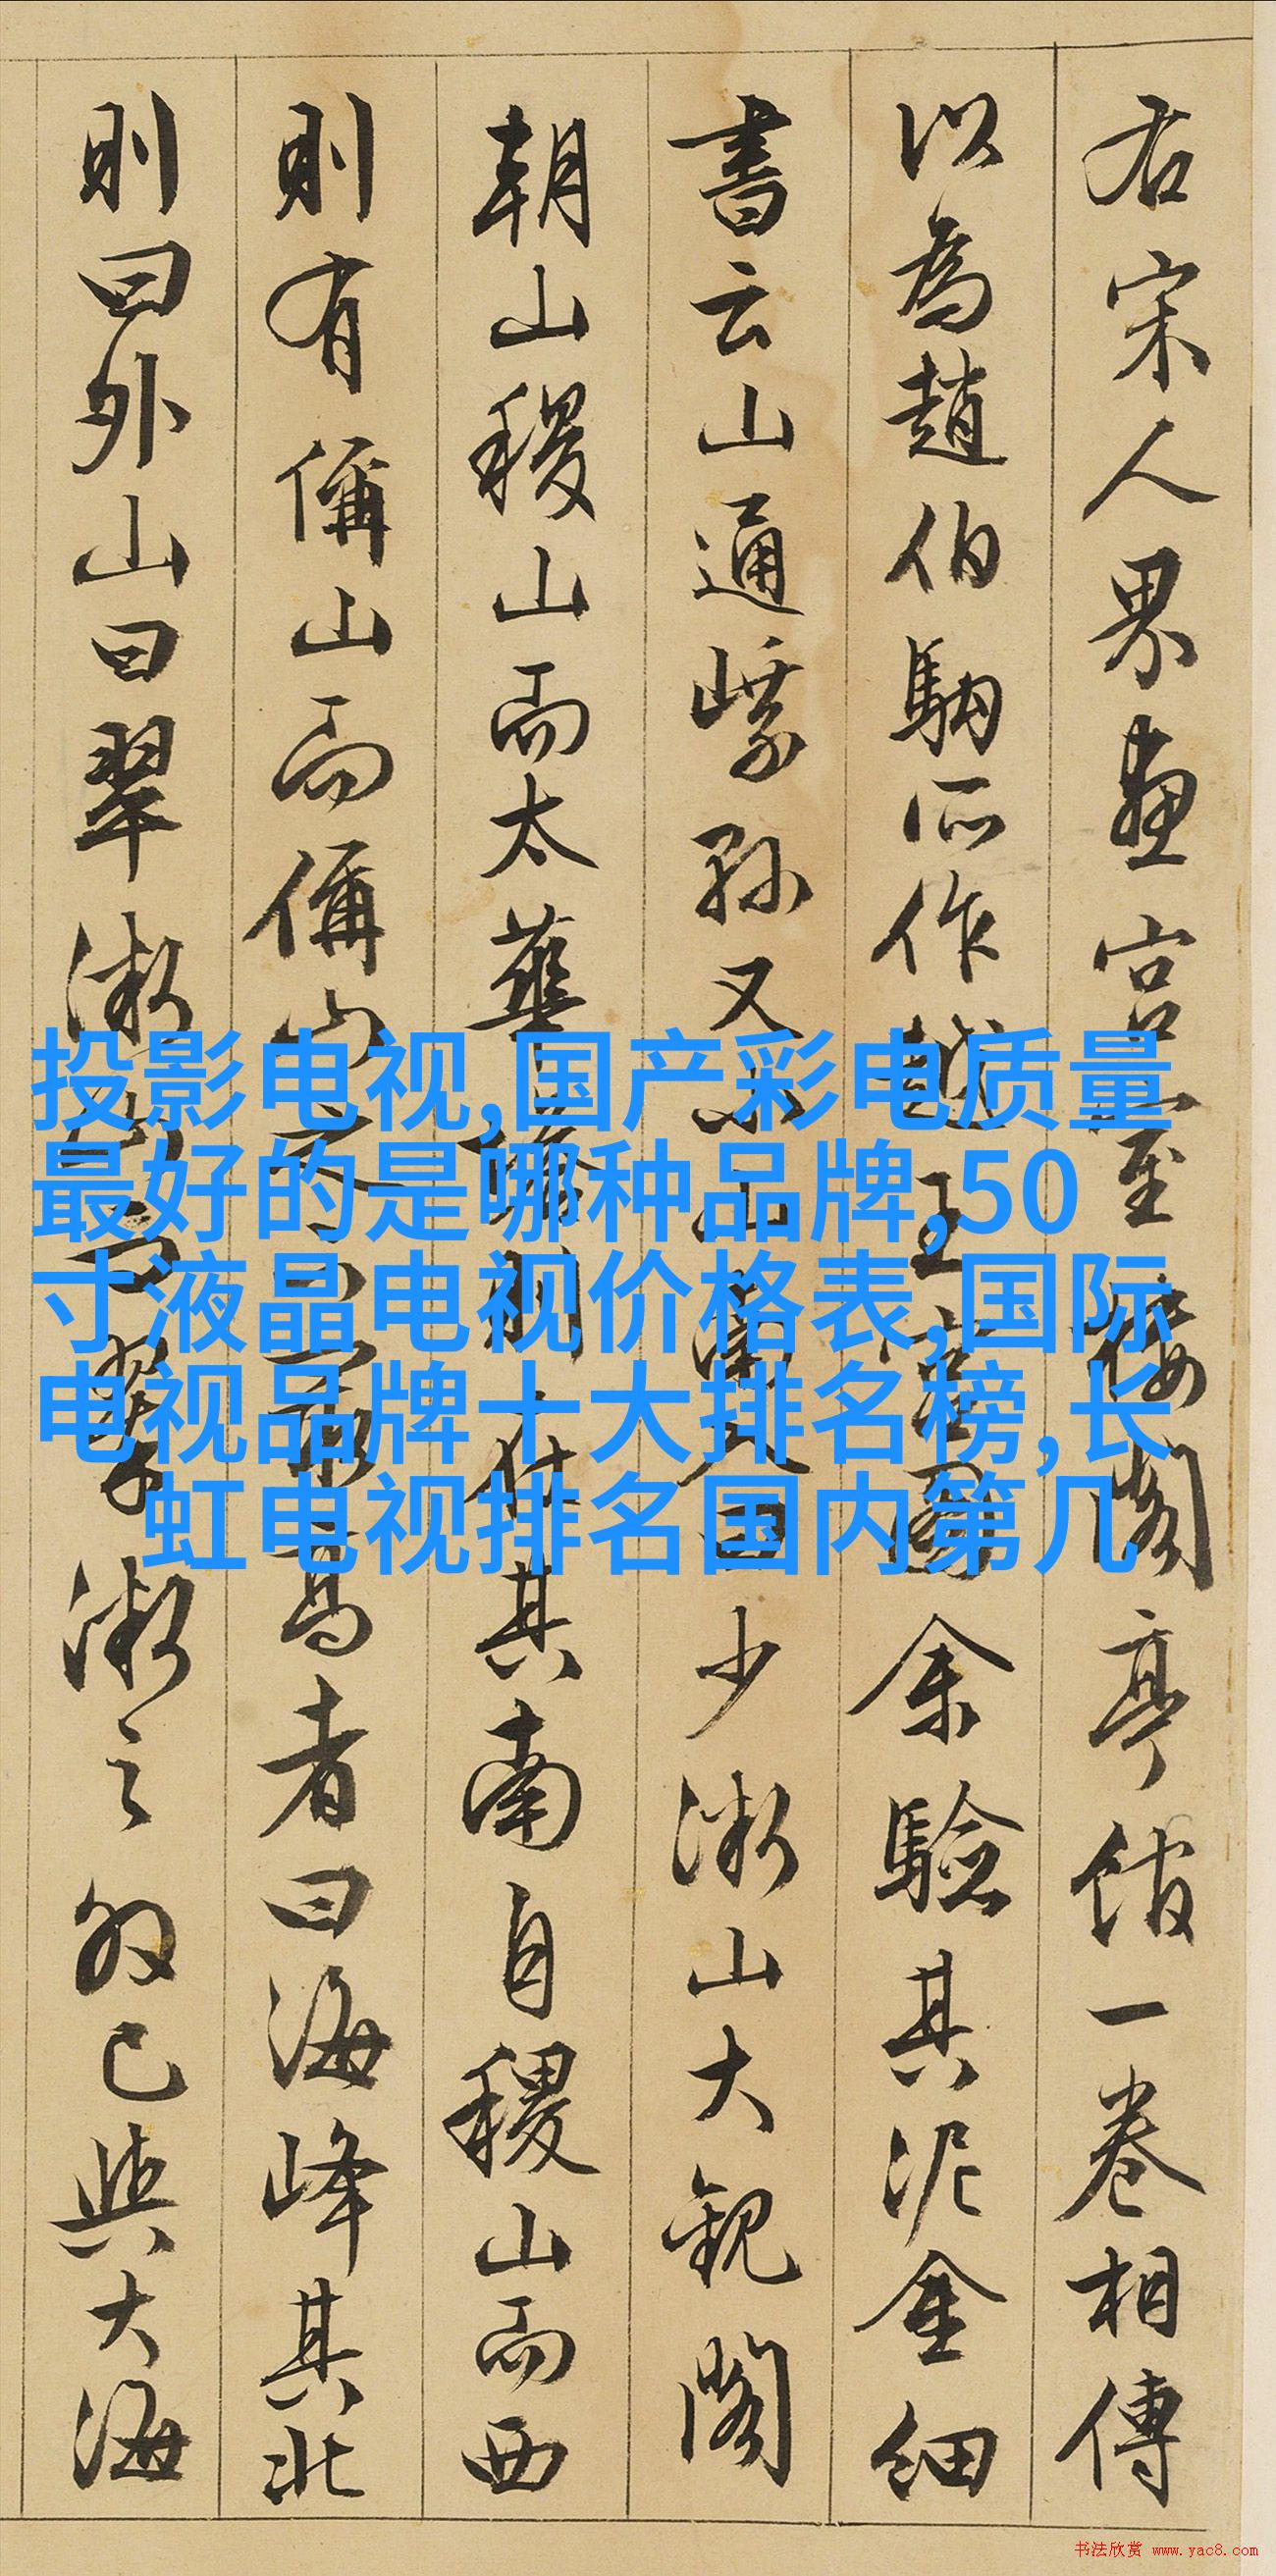 右宋人界畫宮室樓閣亭館一卷相傳
以為趙伯駒所作越王宮圖余驗其泥金細
書云山通又山曰少山大觀閣
朝山稷山而太華其南自稷山而西
則有偁山而偁山最高者曰海峰其北
則曰外山曰翠之外已與大海
投影电视,国产彩电质量
最好的是哪种品牌,50
寸液晶电视价格表,国际
电视品牌十大排名榜,长
虹电视排名国内第几
书法欣赏 www.yac8.com